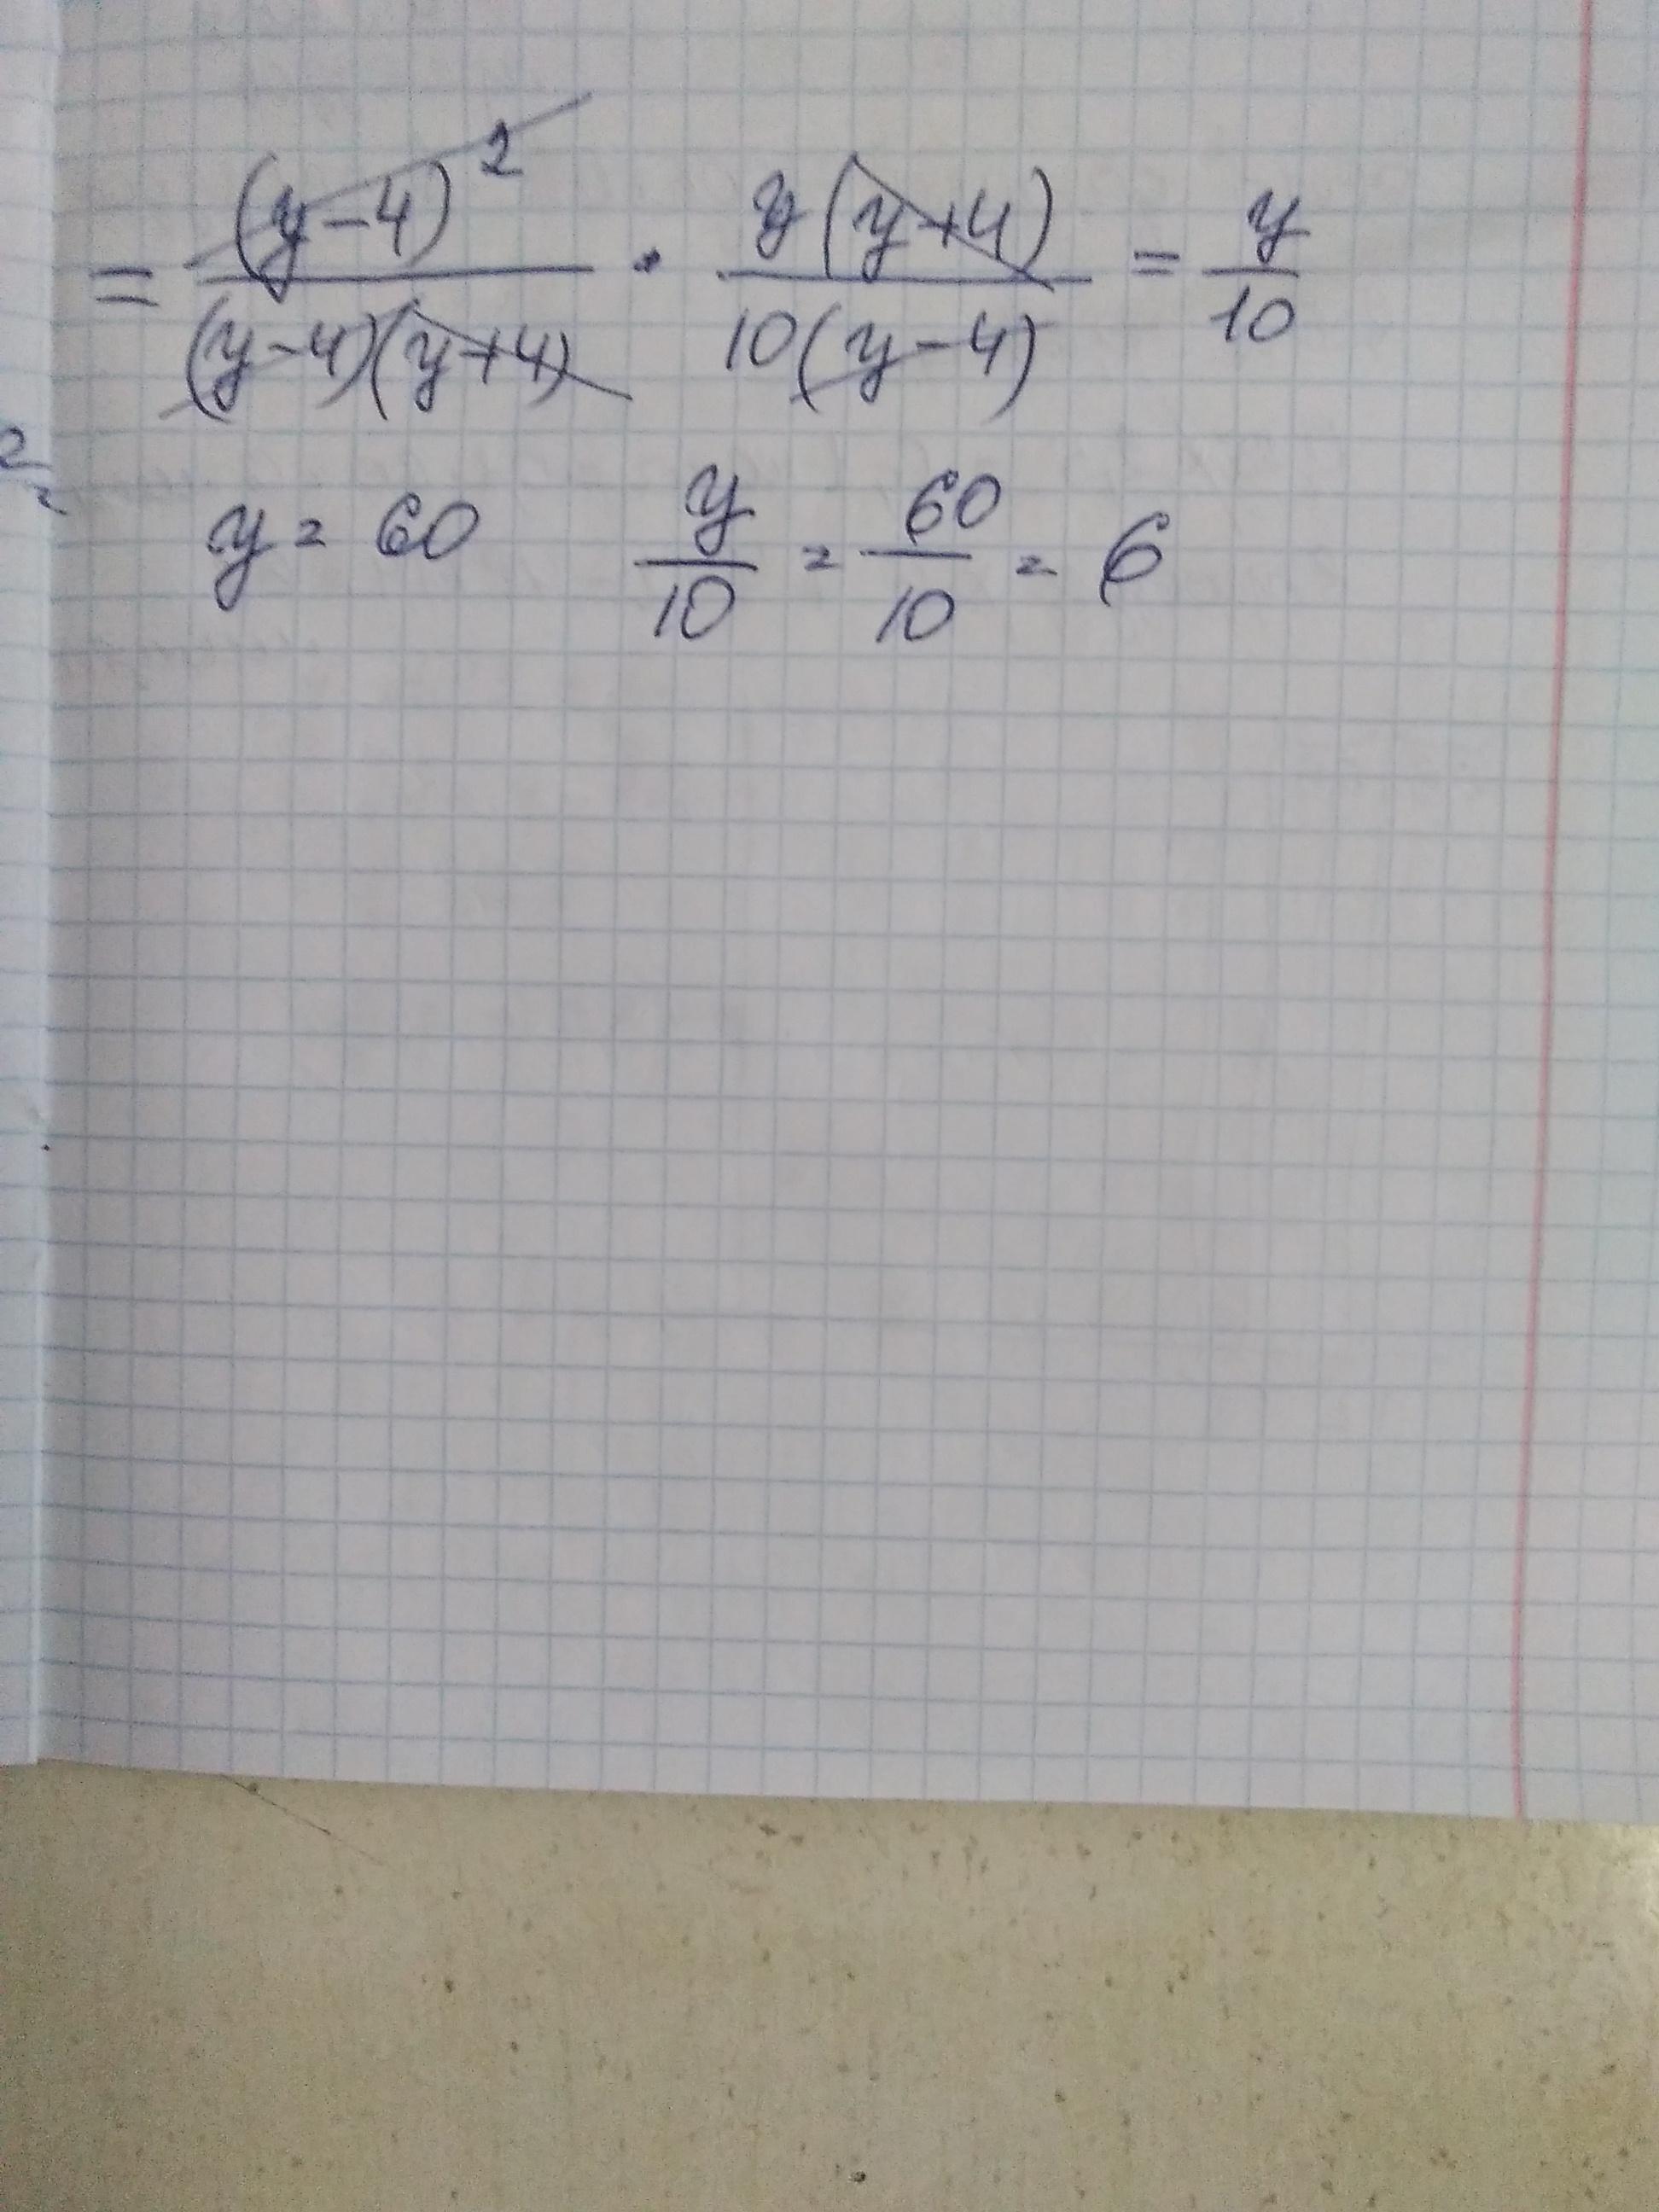 = (y-4)² / (y-4)(y+4) · y(y+4) / 10(y-4) = y/10
y = 60 y/10 = 60/10 = 6